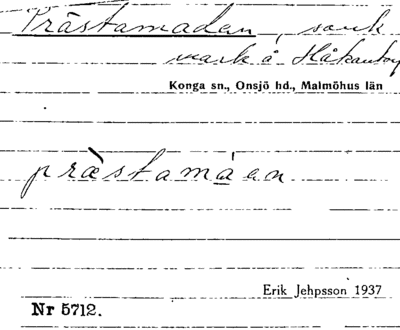 Prästamaden, sank
mark å Håkantorp
Konga sn., Onsjö hd., Malmöhus län
prästamáen
Erik Jehpsson 1937
Nr 5712.